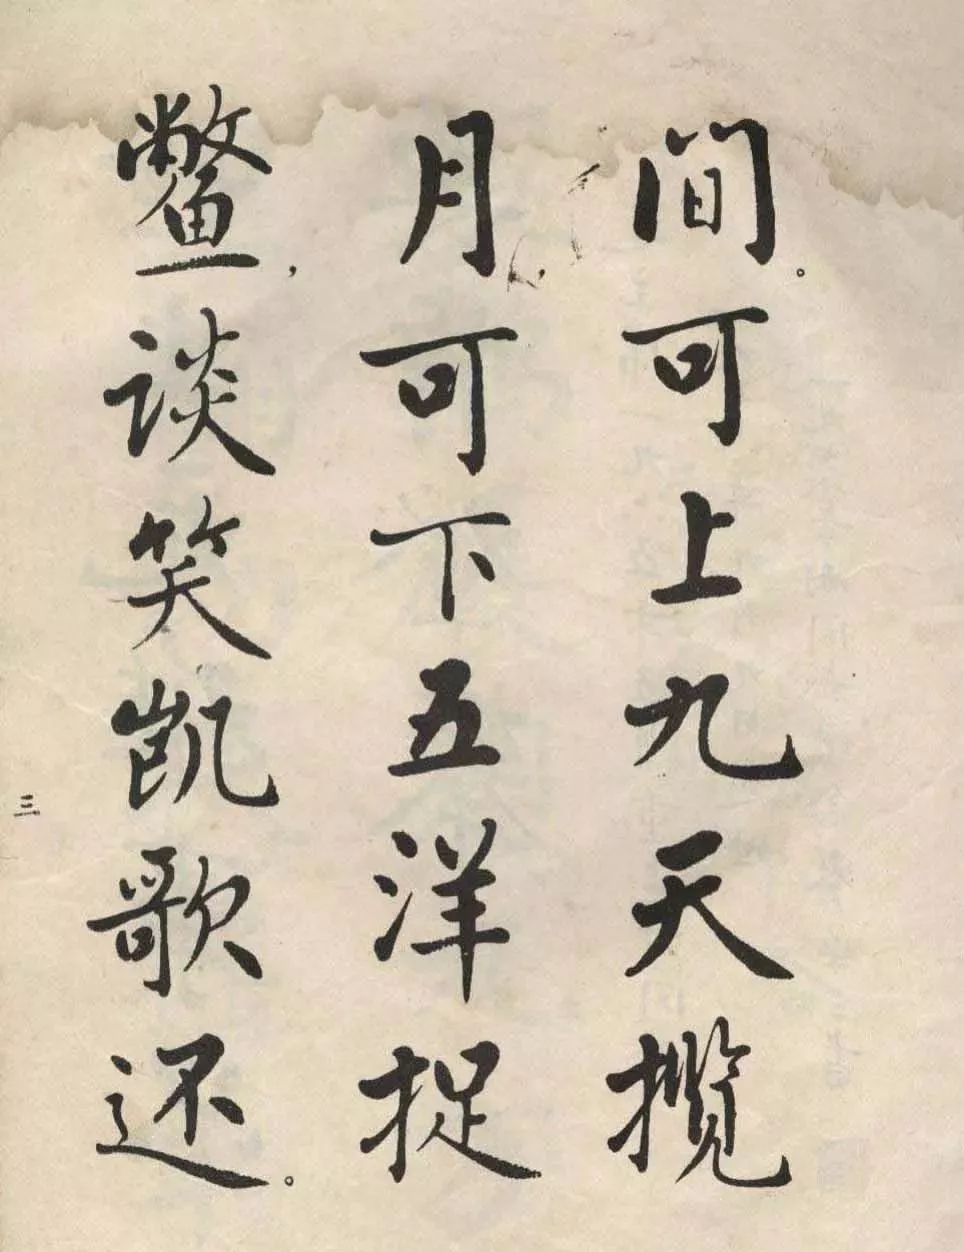 间。可上九天揽
月，可下五洋捉
鳖，谈笑凯歌还。
三